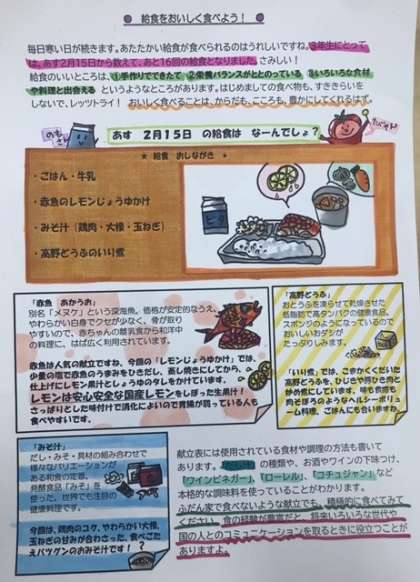 給食をおいしく食べよう！
毎日寒い日が続きます。あたたかい給食が食べられるのはうれしいですね。3年生にとって
は、あす2月15日から数えて、あと16回の給食となりました。さみしい！
給食のいいところは、①手作りでできたて ②栄養バランスがととのっている ③いろいろな食材
や料理と出会える というようなところがあります。はじめましての食べ物も、すききらいを
しないで、レッツトライ！ おいしく食べることは、からだも、こころも、豊かにしてくれるはず。
あす 2月15日 の給食は なーんでしょ？
★ 給食 おしながき ★
・ごはん・牛乳
・赤魚のレモンじょうゆかけ
・みそ汁（鶏肉・大根・玉ねぎ）
・高野どうふのいり煮
「赤魚 あかうお」
別名「メヌケ」という深海魚。価格が安定的なうえ、
やわらかい白身でクセが少なく、骨が取り
やすいので、赤ちゃんの離乳食から和洋中
の料理に、はば広く利用されています。
赤魚は人気の献立ですね。今回の「レモンじょうゆかけ」では、
少量の塩で赤魚のうまみをひきだし、蒸し焼きにしてから、
仕上げにレモン果汁としょうゆのタレをかけています。
レモンは安心安全な国産レモンをしぼった生果汁！
さっぱりとした味付けで消化によいので胃腸が弱っている人も
食べやすいです。
「高野どうふ」
おとうふを凍らせて乾燥させた
低脂肪で高タンパクの健康食品。
スポンジのようになっているので
おいしいおダシが
たっぷりしみます。
「いり煮」では、こまかくくだいた
高野どうふを、ひじきや豚ひき肉と
炒め煮にしています。味も食感も
肉そぼろのようなヘルシーボリュ
ーム料理。ごはんにも合いますね。
「みそ汁」
だし・みそ・具材の組み合わせで
様々なバリエーションが
ある和食の定番。
発酵食品「みそ」を
使った、世界でも注目の
健康料理です。
今回は、鶏肉のコク、やわらかい大根、
玉ねぎの甘みが合わさった、食べごた
えバツグンのおみそ汁です！
献立表には使用されている食材や調理の方法も書いて
あります。の種類や、お酒やワインの下味つけ、
「ワインビネガー」、「ローレル」、「コチュジャン」など
本格的な調味料を使っていることがわかります。
ふだん家で食べないような献立でも、積極的に食べてみて
ください。食の経験が豊富だと、将来いろいろな世代や
国の人とのコミュニケーションを取るときに役立つことが
ありますよ。